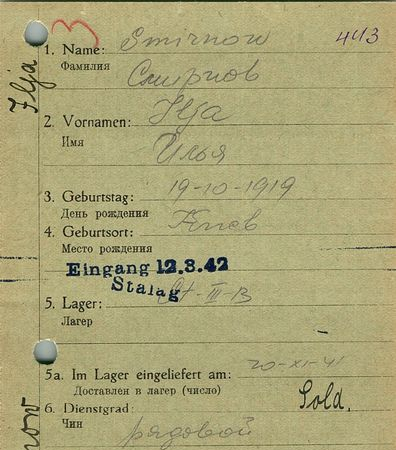 3
443
Ilja
1. Name: Smirnow
Фамилия
Смирнов
2. Vornamen: Ilja
Имя
Илья
3. Geburtstag: 19-10-1919
День рождения
4. Geburtsort:
Место рождения
Eingang 12.3.42
Stalag
5. Lager: St-III-B
Лагер
5a. Im Lager eingeliefert am: 20-XI-41
Доставлен в лагер (число)
6. Dienstgrad: Sold.
Чин
рядовой
now